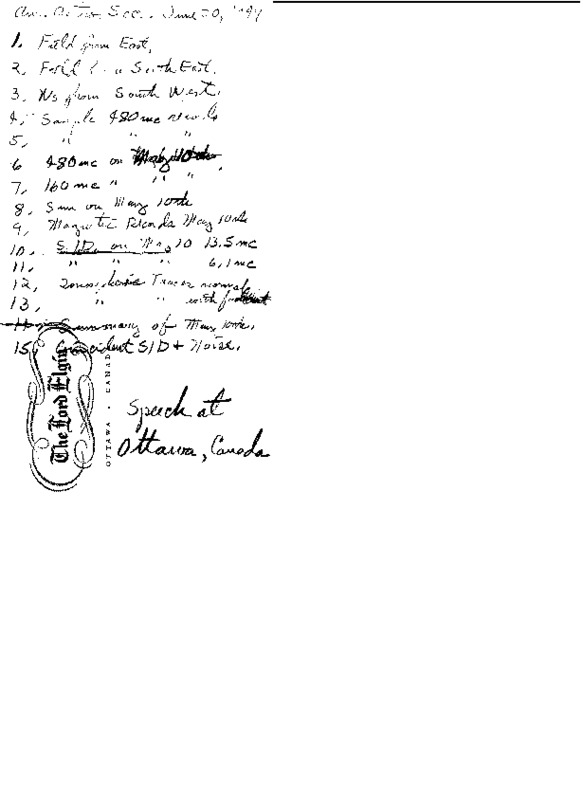 Am. Astron Soc. June 20,
1. Field from East,
2. Field from South East.
3. Ws from South West.
4. Sample 480 mc records
5, " "
6 480 mc on
7, 160 mc " " "
8, Sun on May 10th
9, Magnetic Records May 10th
10, S.I.D. on May 10 13.5 mc
11, " " " 6.1 mc
12, Ionospheric Traces normal,
13, " " with
14. Summary of May 10th.
15, Coincident SID + Noise.
The Lord Elgin
OTTAWA . CANADA
Speech at
Ottawa, Canada